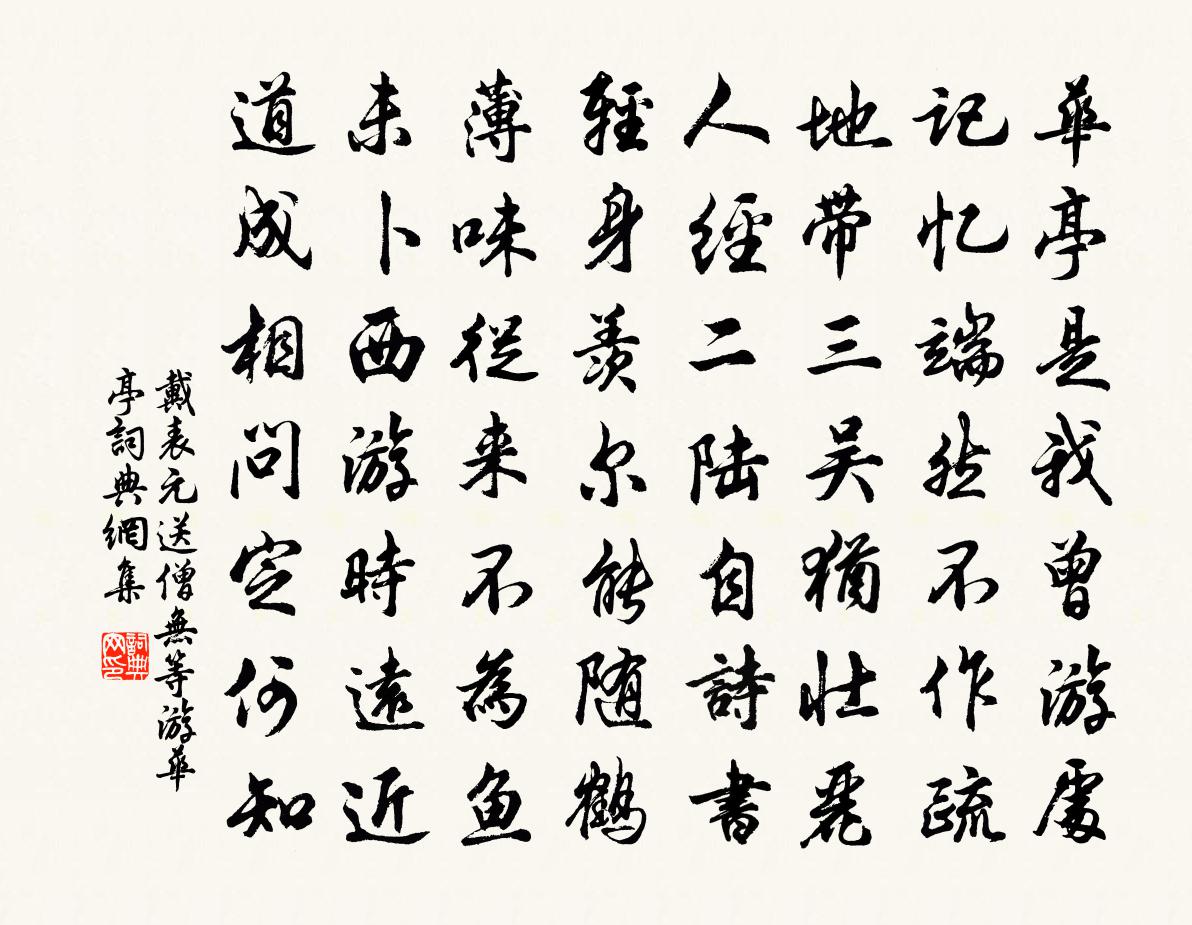 華亭是我曾游處
記忆端然不作疏
地带三吴猶壮麗
人經二陆自詩書
輕身羨尔能随鶴
薄味從来不為鱼
未卜西游時遠近
道成相問定何知
戴表元送僧無等游華
亭詞典網集
詞典网印